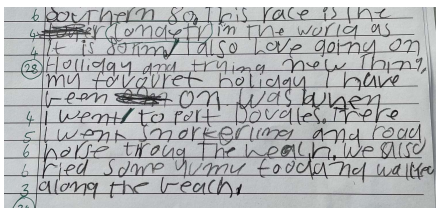 6 Southern So, This race is the
4 thin the world as
4 it is sonny I also Love going on
28 Holliday and trying new Thing,
my favouret holiday I have
been on was when
4 I went to Port Douales. There
5 I went Snorkerling and road
6 horse throug the beach, we also
6 ried some yumy food and walked
3 along the beach,